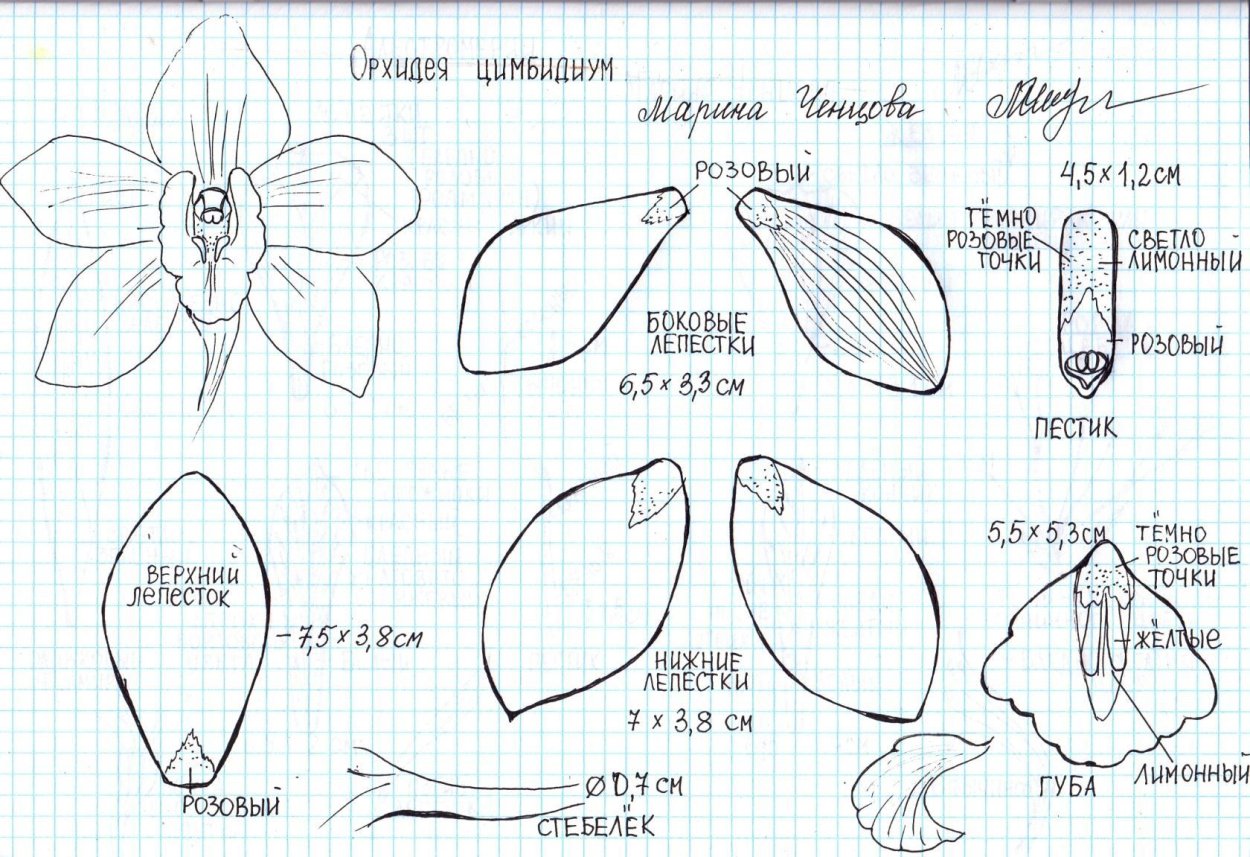 Орхидея цимбидиум
Марина Ченцова
РОЗОВЫЙ
БОКОВЫЕ
ЛЕПЕСТКИ
6,5 × 3,3 см
4,5 × 1,2 см
ТЁМНО
РОЗОВЫЕ
ТОЧКИ
СВЕТЛО
ЛИМОННЫЙ
РОЗОВЫЙ
ПЕСТИК
ВЕРХНИЙ
ЛЕПЕСТОК
– 7,5 × 3,8 см
РОЗОВЫЙ
НИЖНИЕ
ЛЕПЕСТКИ
7 × 3,8 см
Ø 0,7 см
СТЕБЕЛЁК
5,5 × 5,3 см
ТЁМНО
РОЗОВЫЕ
ТОЧКИ
ЖЁЛТЫЕ
ЛИМОННЫЙ
ГУБА